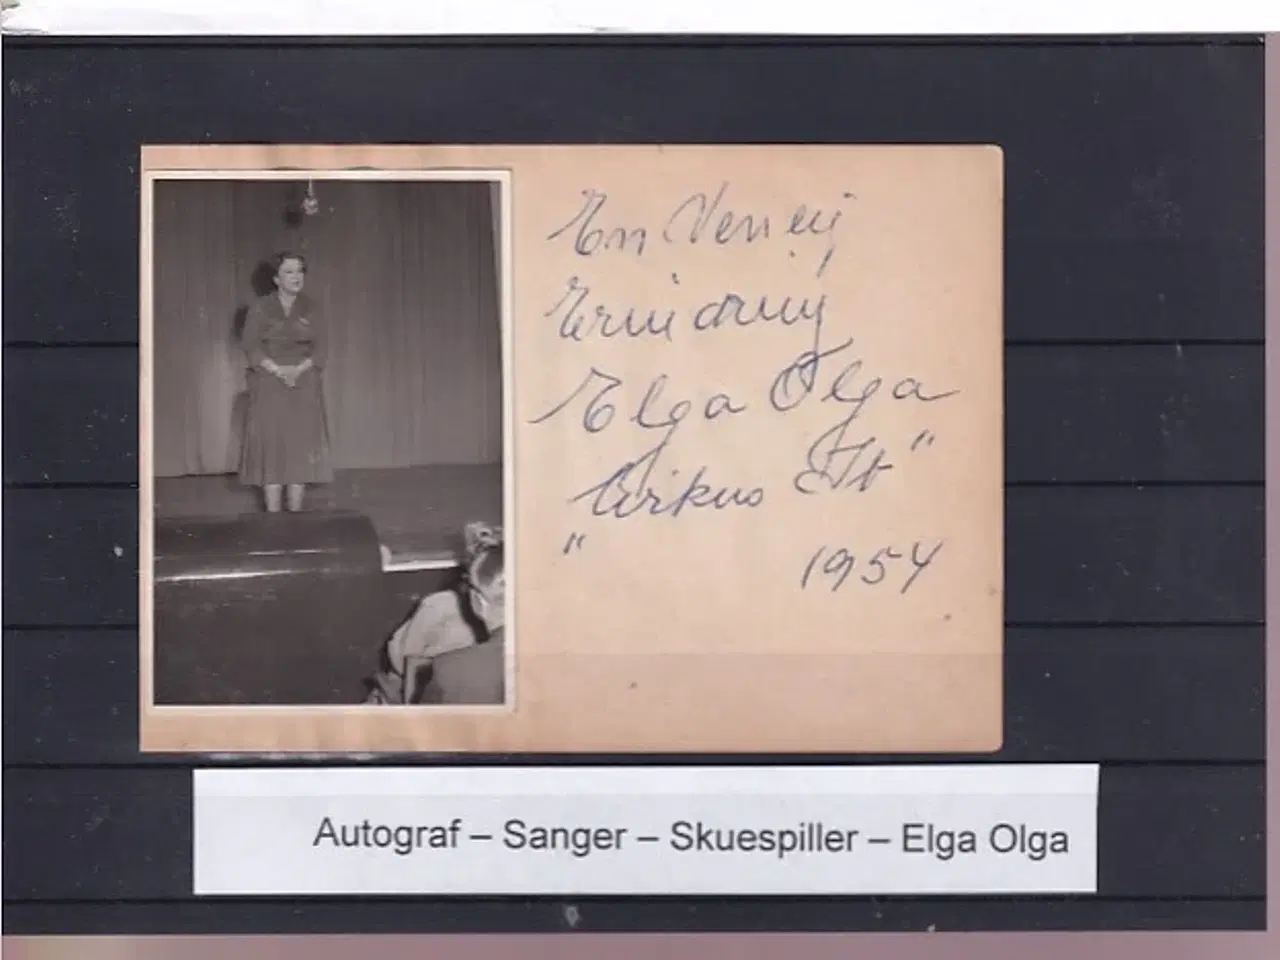 En Venlig
Erindring
Elga Olga
"Cirkus
1954
Autograf – Sanger – Skuespiller – Elga Olga